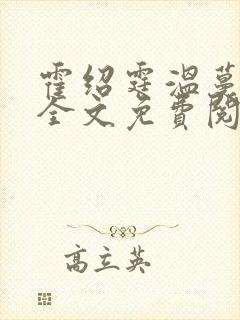 霍绍霆温蔓
全文免费阅
高立英